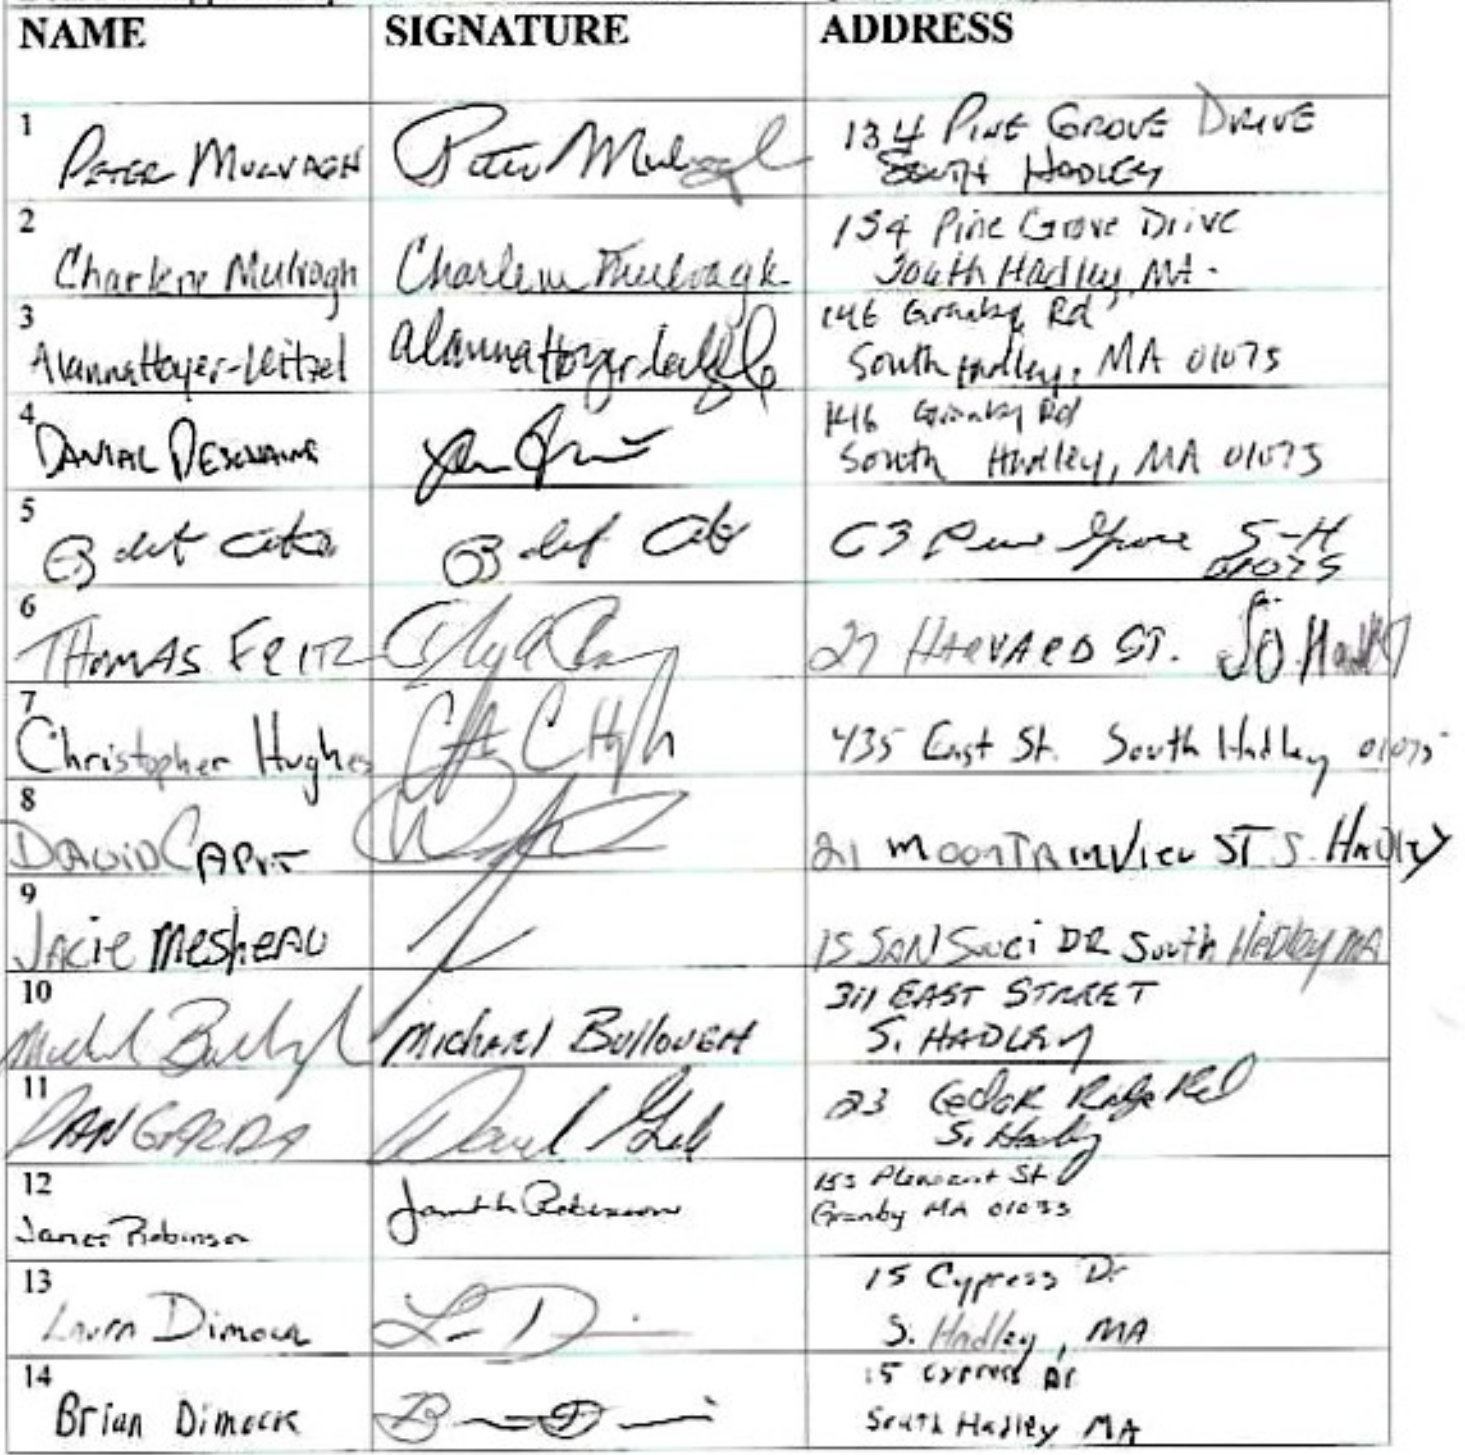 NAME SIGNATURE ADDRESS
1 PETER MULVAGH Peter Mulvagh 134 PINE GROVE DRIVE
SOUTH HADLEY
2 Charlene Mulvagh Charlene Mulvagh 134 Pine Grove Drive
South Hadley, MA.
3 Alanna Hoyer-Leitzel Alanna Hoyer-Leitzel 146 Granby Rd
South Hadley, MA 01075
4 DANIAL 146 Granby Rd
South Hadley, MA 01075
5 C3 Pine Grove S-H
01075
6 THOMAS FRITZ 27 HARVARD ST. SO. Hadley
7 Christopher Hughes 435 East St. South Hadley 01075
8 DAVID 21 MOONTAINVIEW ST S. HADLEY
9 JACIE MesheAU 15 SAN Souci DR South HADley MA
10 Michael Bullough MICHAEL BULLOUGH 311 EAST STREET
S. HADLEY
11 DAN 23 Cedar Ridge Rd
S. Hadley
12 James Robinson Robinson 153 Pleasant St
Granby MA 01033
13 Laura Dimock L D 15 Cypress Dr
S. Hadley, MA
14 Brian Dimock B D 15 Cypress Dr
South Hadley MA